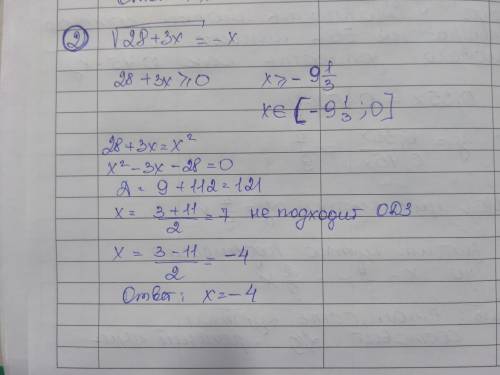 ② √28+3x = -x
28+3x ⩾ 0 x ⩾ - 9 1/3
x ∈ [- 9 1/3 ; 0]
28+3x = x²
x² - 3x - 28 = 0
Д = 9 + 112 = 121
x = (3+11)/2 = 7 не подходит ОДЗ
x = (3-11)/2 = -4
Ответ: x = -4